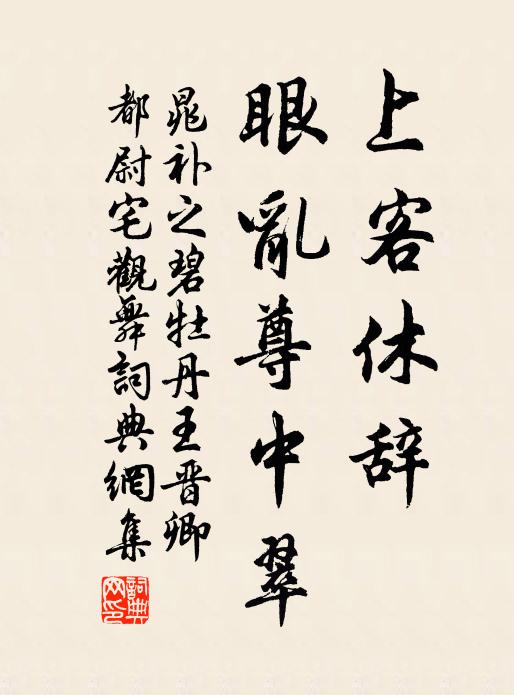 上客休辞
眼亂尊中翠
晁补之碧牡丹王晋卿
都尉宅觀舞詞典網集